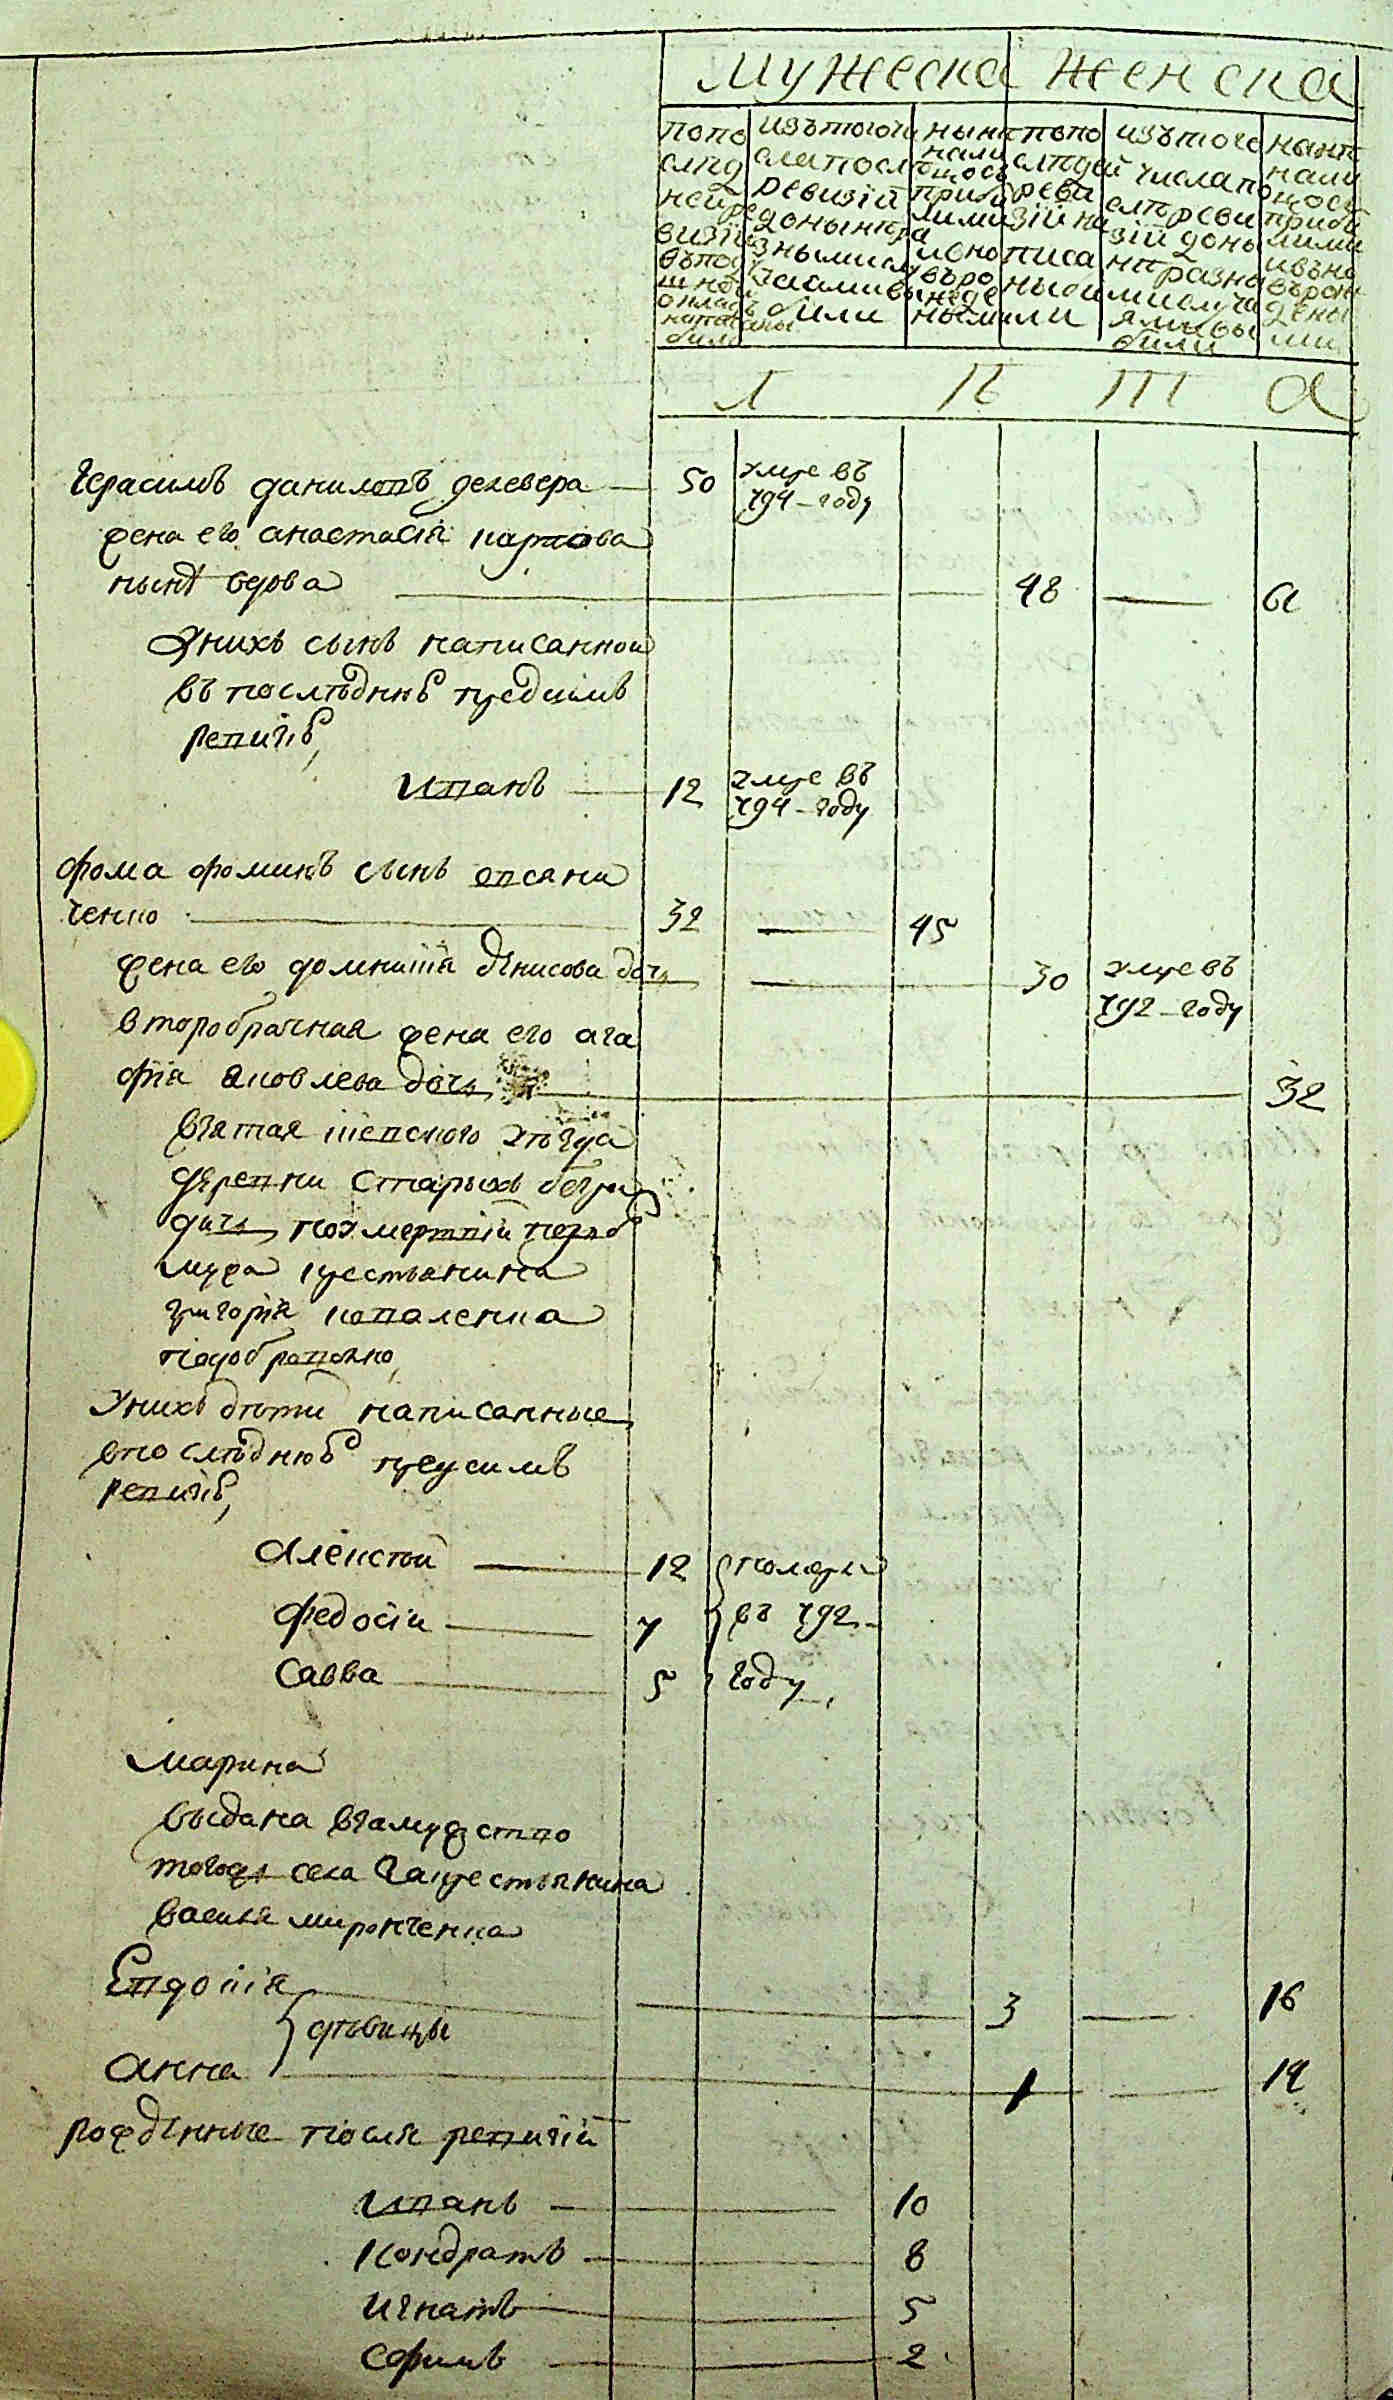 Мужеска Женска
по по слѣд ней ре визіи въ по д ш ной окладъ написаны было
изъ того чи сла по слѣ ревизіи до нынѣ ра зными слу чаями вы были
нынѣ нали цо съ прибы лыми и вно въ ро жде ными
по по слѣдней реви зіи на писа ны были
изъ того числа по слѣ реви зіи до ны нѣ разны ми случа ями вы были
нынѣ нали цо съ прибы лыми и въ но въ рож дены ми
Л Л Л
Герасимъ даниловъ делевера 50 умре въ
794 году
жена его анастасія карпова
нынѣ вдова 48 61
У нихъ сынъ написанной
въ послѣднюѣ предъимъ
ревизіѣ,
Иванъ 12 умре въ
794 году
фома фоминъ сынъ овсяни
ченко 32 45
жена его домникія денисова дочь 30 умре въ
792 году
второбрачная жена его ага
фія яковлева дочь 32
взятая уезда
деревни старыхъ
дичь по смертіи перваѣ
мужа крестьянина
григорія коваленка
У нихъ дѣти написанные
в послѣднюѣ предъимъ
ревизіѣ,
Алексѣй 12 померли
федосіи 7 въ 792
Савва 5 году,
Марина
выдана в замужство
тогожъ села за крестьянина
василя миронченка
Евдокія 3 16
дѣвицы
Анна 1 14
рожденные после ревизіи
Иванъ 10
Кондратъ 8
Игнатъ 5
Ефимъ 2